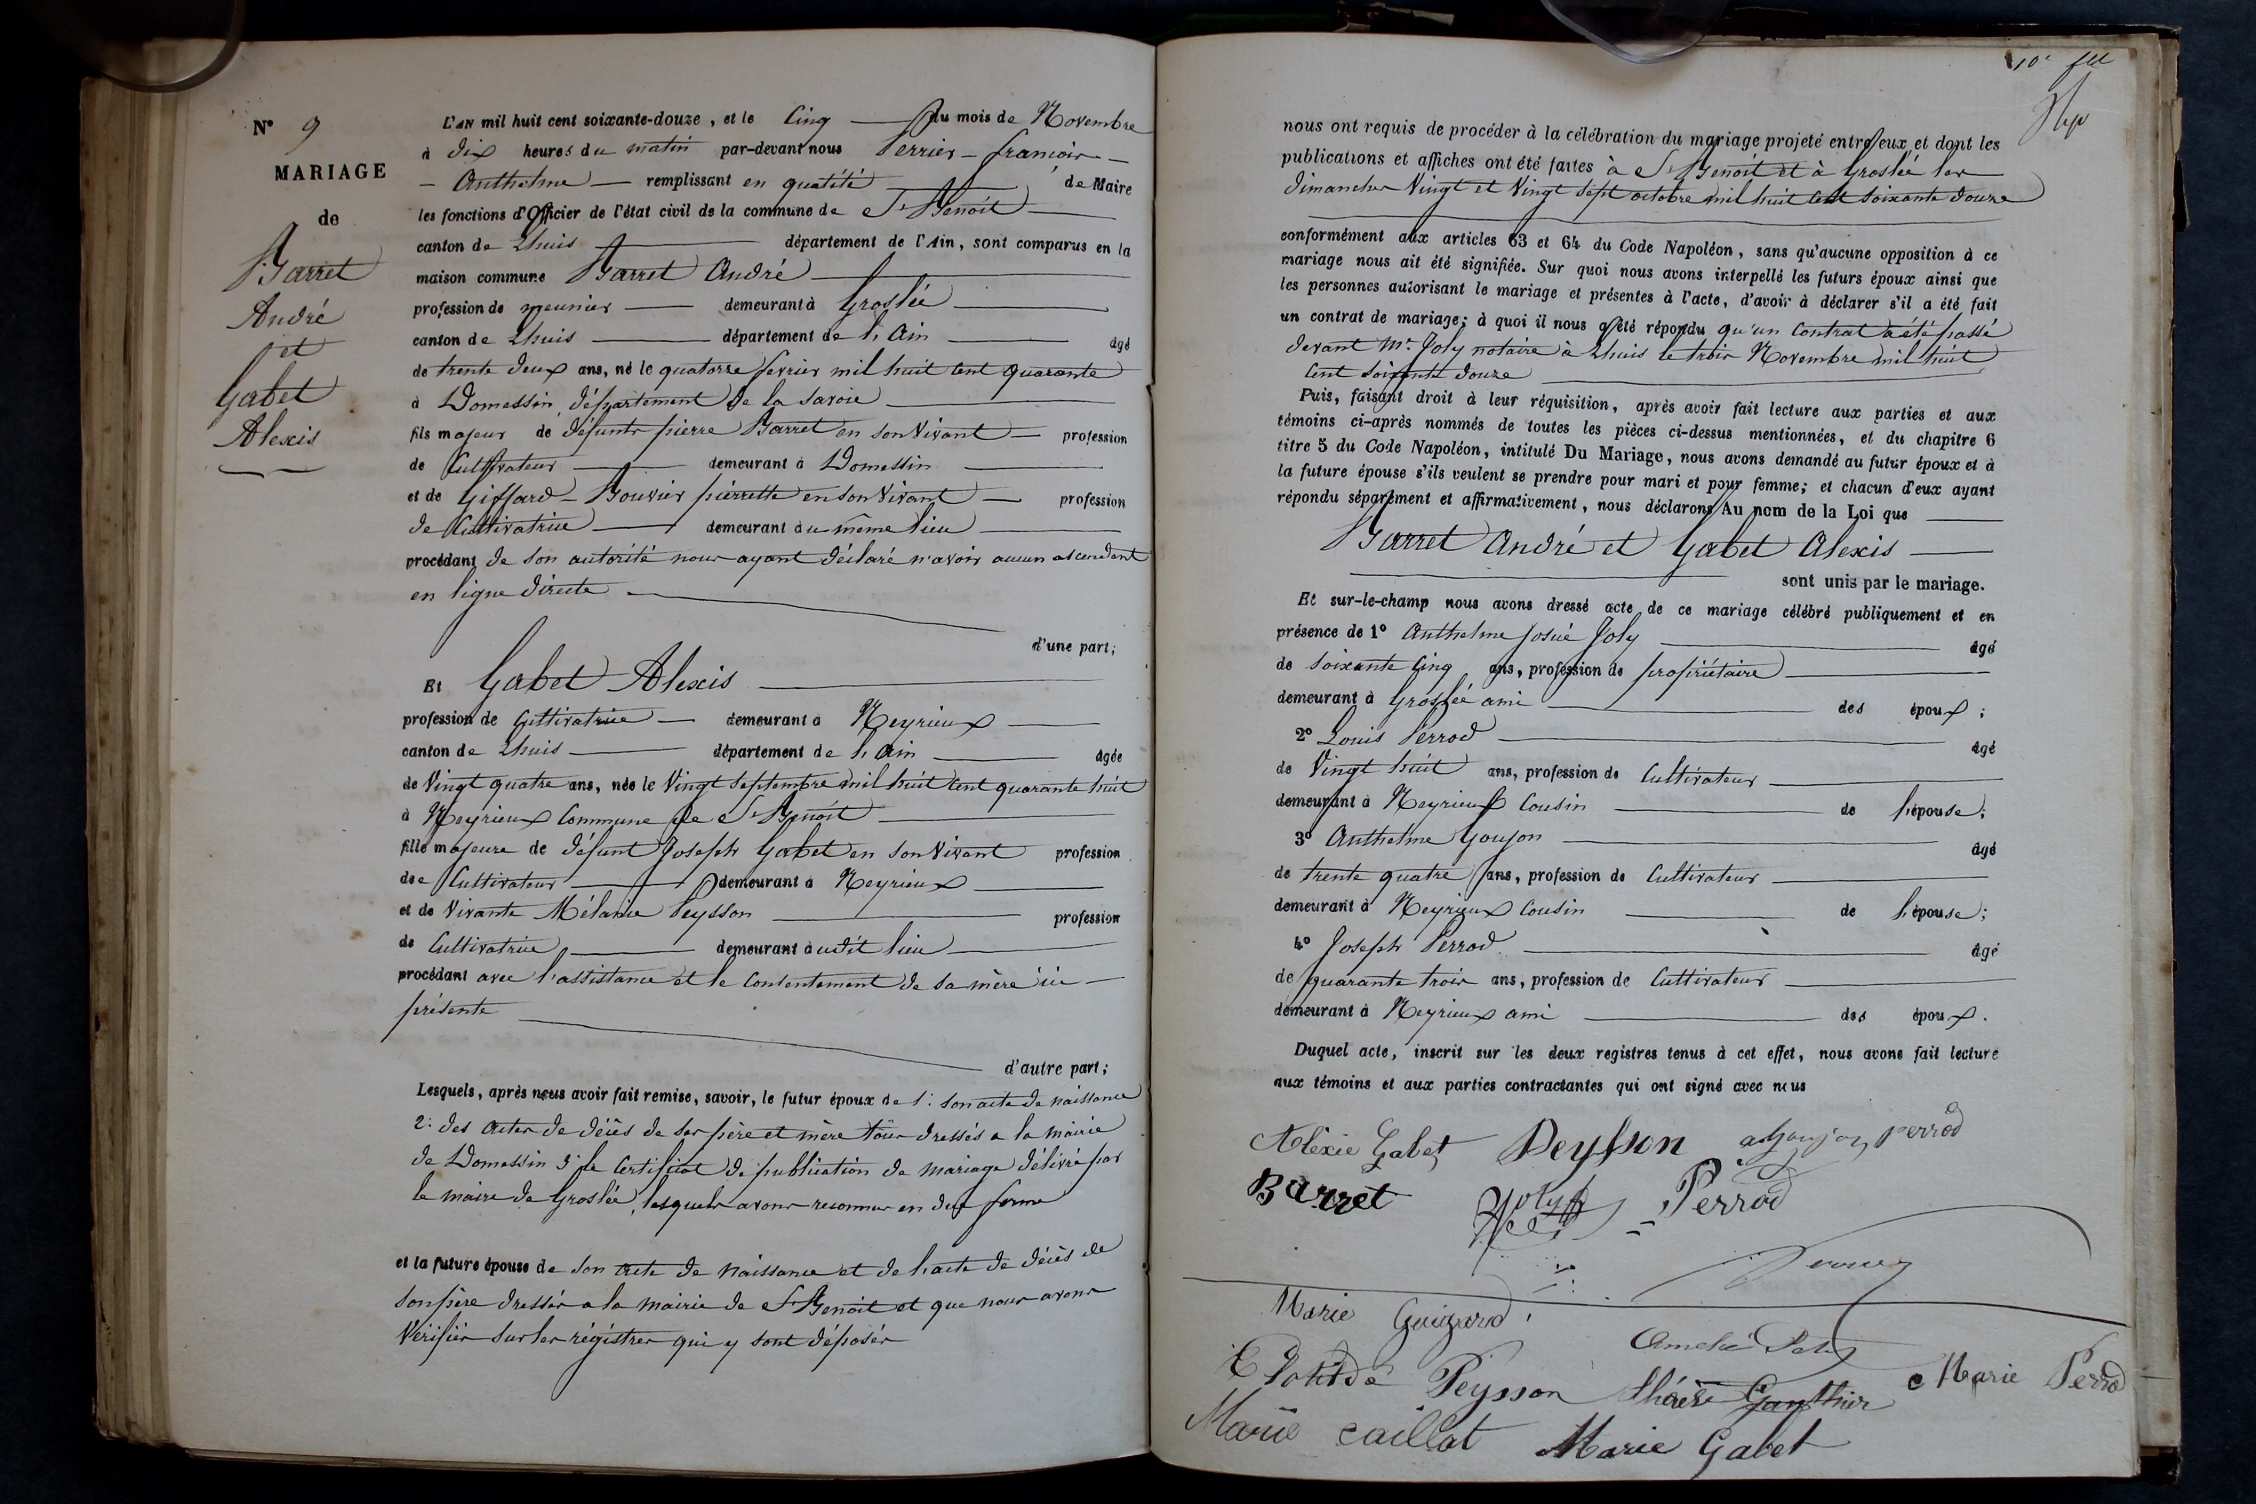 N° 9
MARIAGE
de
Barret
André
et
Gabet
Alexis
L'AN mil huit cent soixante-douze, et le Cinq du mois de Novembre
à dix heures du matin par-devant nous Perrier françois
Anthelme remplissant en qualité de Maire
les fonctions d'Officier de l'état civil de la commune de St Benoit
canton de Lhuis département de l'Ain, sont comparus en la
maison commune Barret André
profession de meunier demeurant à Groslée
canton de Lhuis département de l'Ain âgé
de trente deux ans, né le quatorze fevrier mil huit cent quarante
à Domessin, département de la Savoie
fils majeur de défunts pierre Barret en son vivant profession
de Cultivateur demeurant à Domessin
et de Giffard - Bouvier pierrette en son vivant profession
de Cultivatrice demeurant au même lieu
procédant de son autorité nous ayant déclaré n'avoir aucun ascendant
en ligne directe
d'une part;
Et Gabet Alexis
profession de Cultivatrice demeurant à Meyrieux
canton de Lhuis département de l'Ain âgée
de Vingt quatre ans, née le Vingt Septembre mil huit cent quarante huit
à Meyrieux Commune de St Benoit
fille majeure de défunt Joseph Gabet en son vivant profession
de Cultivateur demeurant à Meyrieux
et de vivante Mélanie Peysson profession
de Cultivatrice demeurant à udit lieu
procédant avec l'assistance et le consentement de sa mère ici
présente
d'autre part;
Lesquels, après nous avoir fait remise, savoir, le futur époux de 1° son acte de naissance
2° des actes de décès de ses père et mère tous dressés a la mairie
de Domessin 3° le certificat de publication de mariage délivré par
le maire de Groslée, lesquels avons reconnus en due forme
et la future épouse de son acte de naissance et de l'acte de décès de
son père dressés a la mairie de St Benoit et que nous avons
Vérifiés sur les régistres qui y sont déposés
10e flt
nous ont requis de procéder à la célébration du mariage projeté entre eux et dont les
publications et affiches ont été faites à St Benoit et à Groslée les
dimanches Vingt et Vingt Sept octobre mil huit cent soixante douze
conformément aux articles 63 et 64 du Code Napoléon, sans qu'aucune opposition à ce
mariage nous ait été signifiée. Sur quoi nous avons interpellé les futurs époux ainsi que
les personnes autorisant le mariage et présentes à l'acte, d'avoir à déclarer s'il a été fait
un contrat de mariage; à quoi il nous a été répondu qu'un Contrat a été passé
devant Me Joly notaire à Lhuis le trois Novembre mil huit
cent soixante douze
Puis, faisant droit à leur réquisition, après avoir fait lecture aux parties et aux
témoins ci-après nommés de toutes les pièces ci-dessus mentionnées, et du chapitre 6
titre 5 du Code Napoléon, intitulé Du Mariage, nous avons demandé au futur époux et à
la future épouse s'ils veulent se prendre pour mari et pour femme; et chacun d'eux ayant
répondu séparément et affirmativement, nous déclarons Au nom de la Loi que
Barret André et Gabet Alexis
sont unis par le mariage.
Et sur-le-champ nous avons dressé acte de ce mariage célébré publiquement et en
présence de 1° Anthelme Josué Joly âgé
de soixante cinq ans, profession de propriétaire
demeurant à Groslée ami des époux;
2° Louis Perrod âgé
de Vingt huit ans, profession de Cultivateur
demeurant à Meyrieux Cousin de l'épouse;
3° Anthelme Goujon âgé
de trente quatre ans, profession de Cultivateur
demeurant à Meyrieux Cousin de l'épouse;
4° Joseph Perrod âgé
de quarante trois ans, profession de Cultivateur
demeurant à Meyrieux ami des époux.
Duquel acte, inscrit sur les deux registres tenus à cet effet, nous avons fait lecture
aux témoins et aux parties contractantes qui ont signé avec nous
Alexie Gabet Peysson a Goujon perrod
Barret Joly Perrod
Marie Guigard
Amelie Joly
Clotilde Peysson Gauthier Marie Perrod
Marie Caillat Marie Gabet